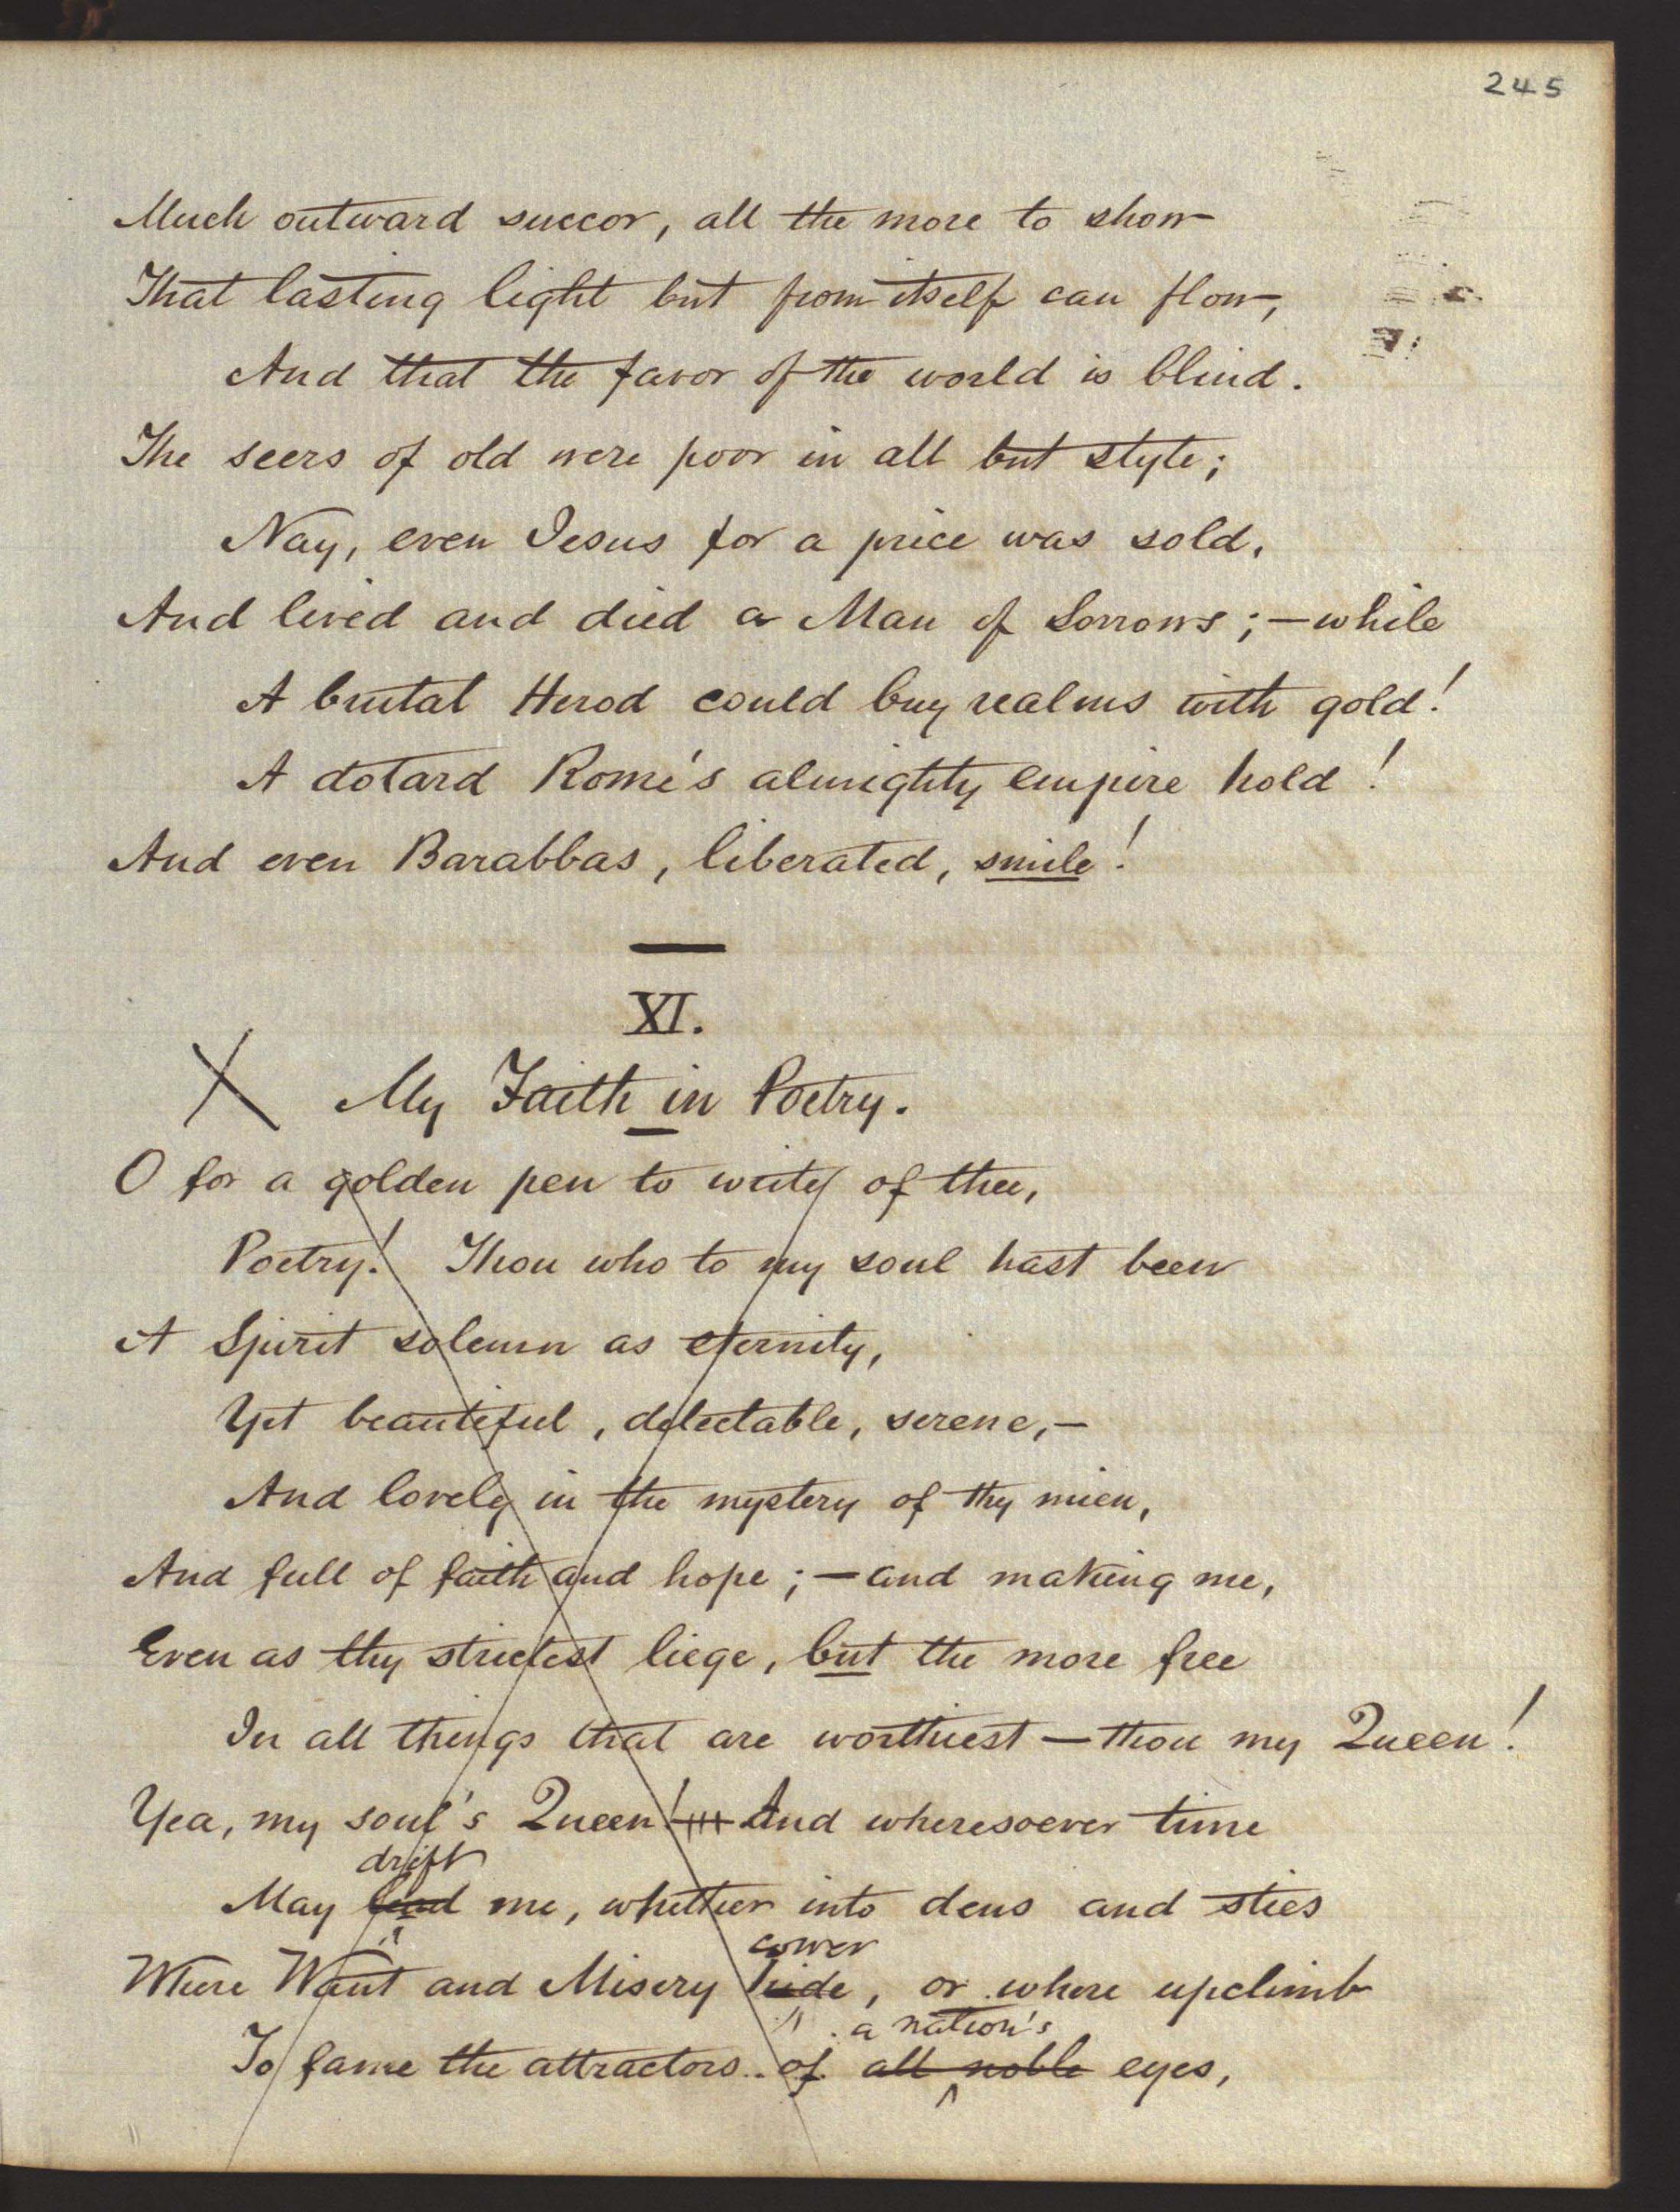 245
Much outward succor, all the more to show
That lasting light but from itself can flow,
And that the favor of the world is blind.
The seers of old were poor in all but style;
Nay, even Jesus for a price was sold,
And lived and died a Man of Sorrows;—while
A brutal Herod could buy realms with gold!
A dotard Rome's almighty empire hold!
And even Barabbas, liberated, smile!
XI.
My Faith in Poetry.
O for a golden pen to write of thee,
Poetry! Thou who to my soul hast been
A Spirit solemn as eternity,
Yet beautiful, delectable, serene,—
And lovely in the mystery of thy mien,
And full of faith and hope;—and making me,
Even as thy strictest liege, but the more free
In all things that are worthiest—thou my Queen!
Yea, my soul's Queen! And wheresoever time
drift
May lead me, whether into dens and sties
cower
Where Want and Misery hide, or where upclimb
a nation's
To fame the attractors of all noble eyes,